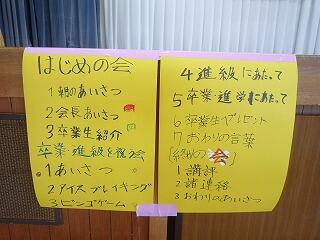 はじめの会
1 朝のあいさつ
2 会長あいさつ
3 卒業生紹介
卒業・進級を祝う会
1 あいさつ
2 アイスブレイキング
3 ビンゴゲーム
4 進級にあたって
5 卒業・進学にあたって
6 卒業生プレゼント
7 おわりの言葉
会
1 講評
2 諸連絡
3 おわりのあいさつ